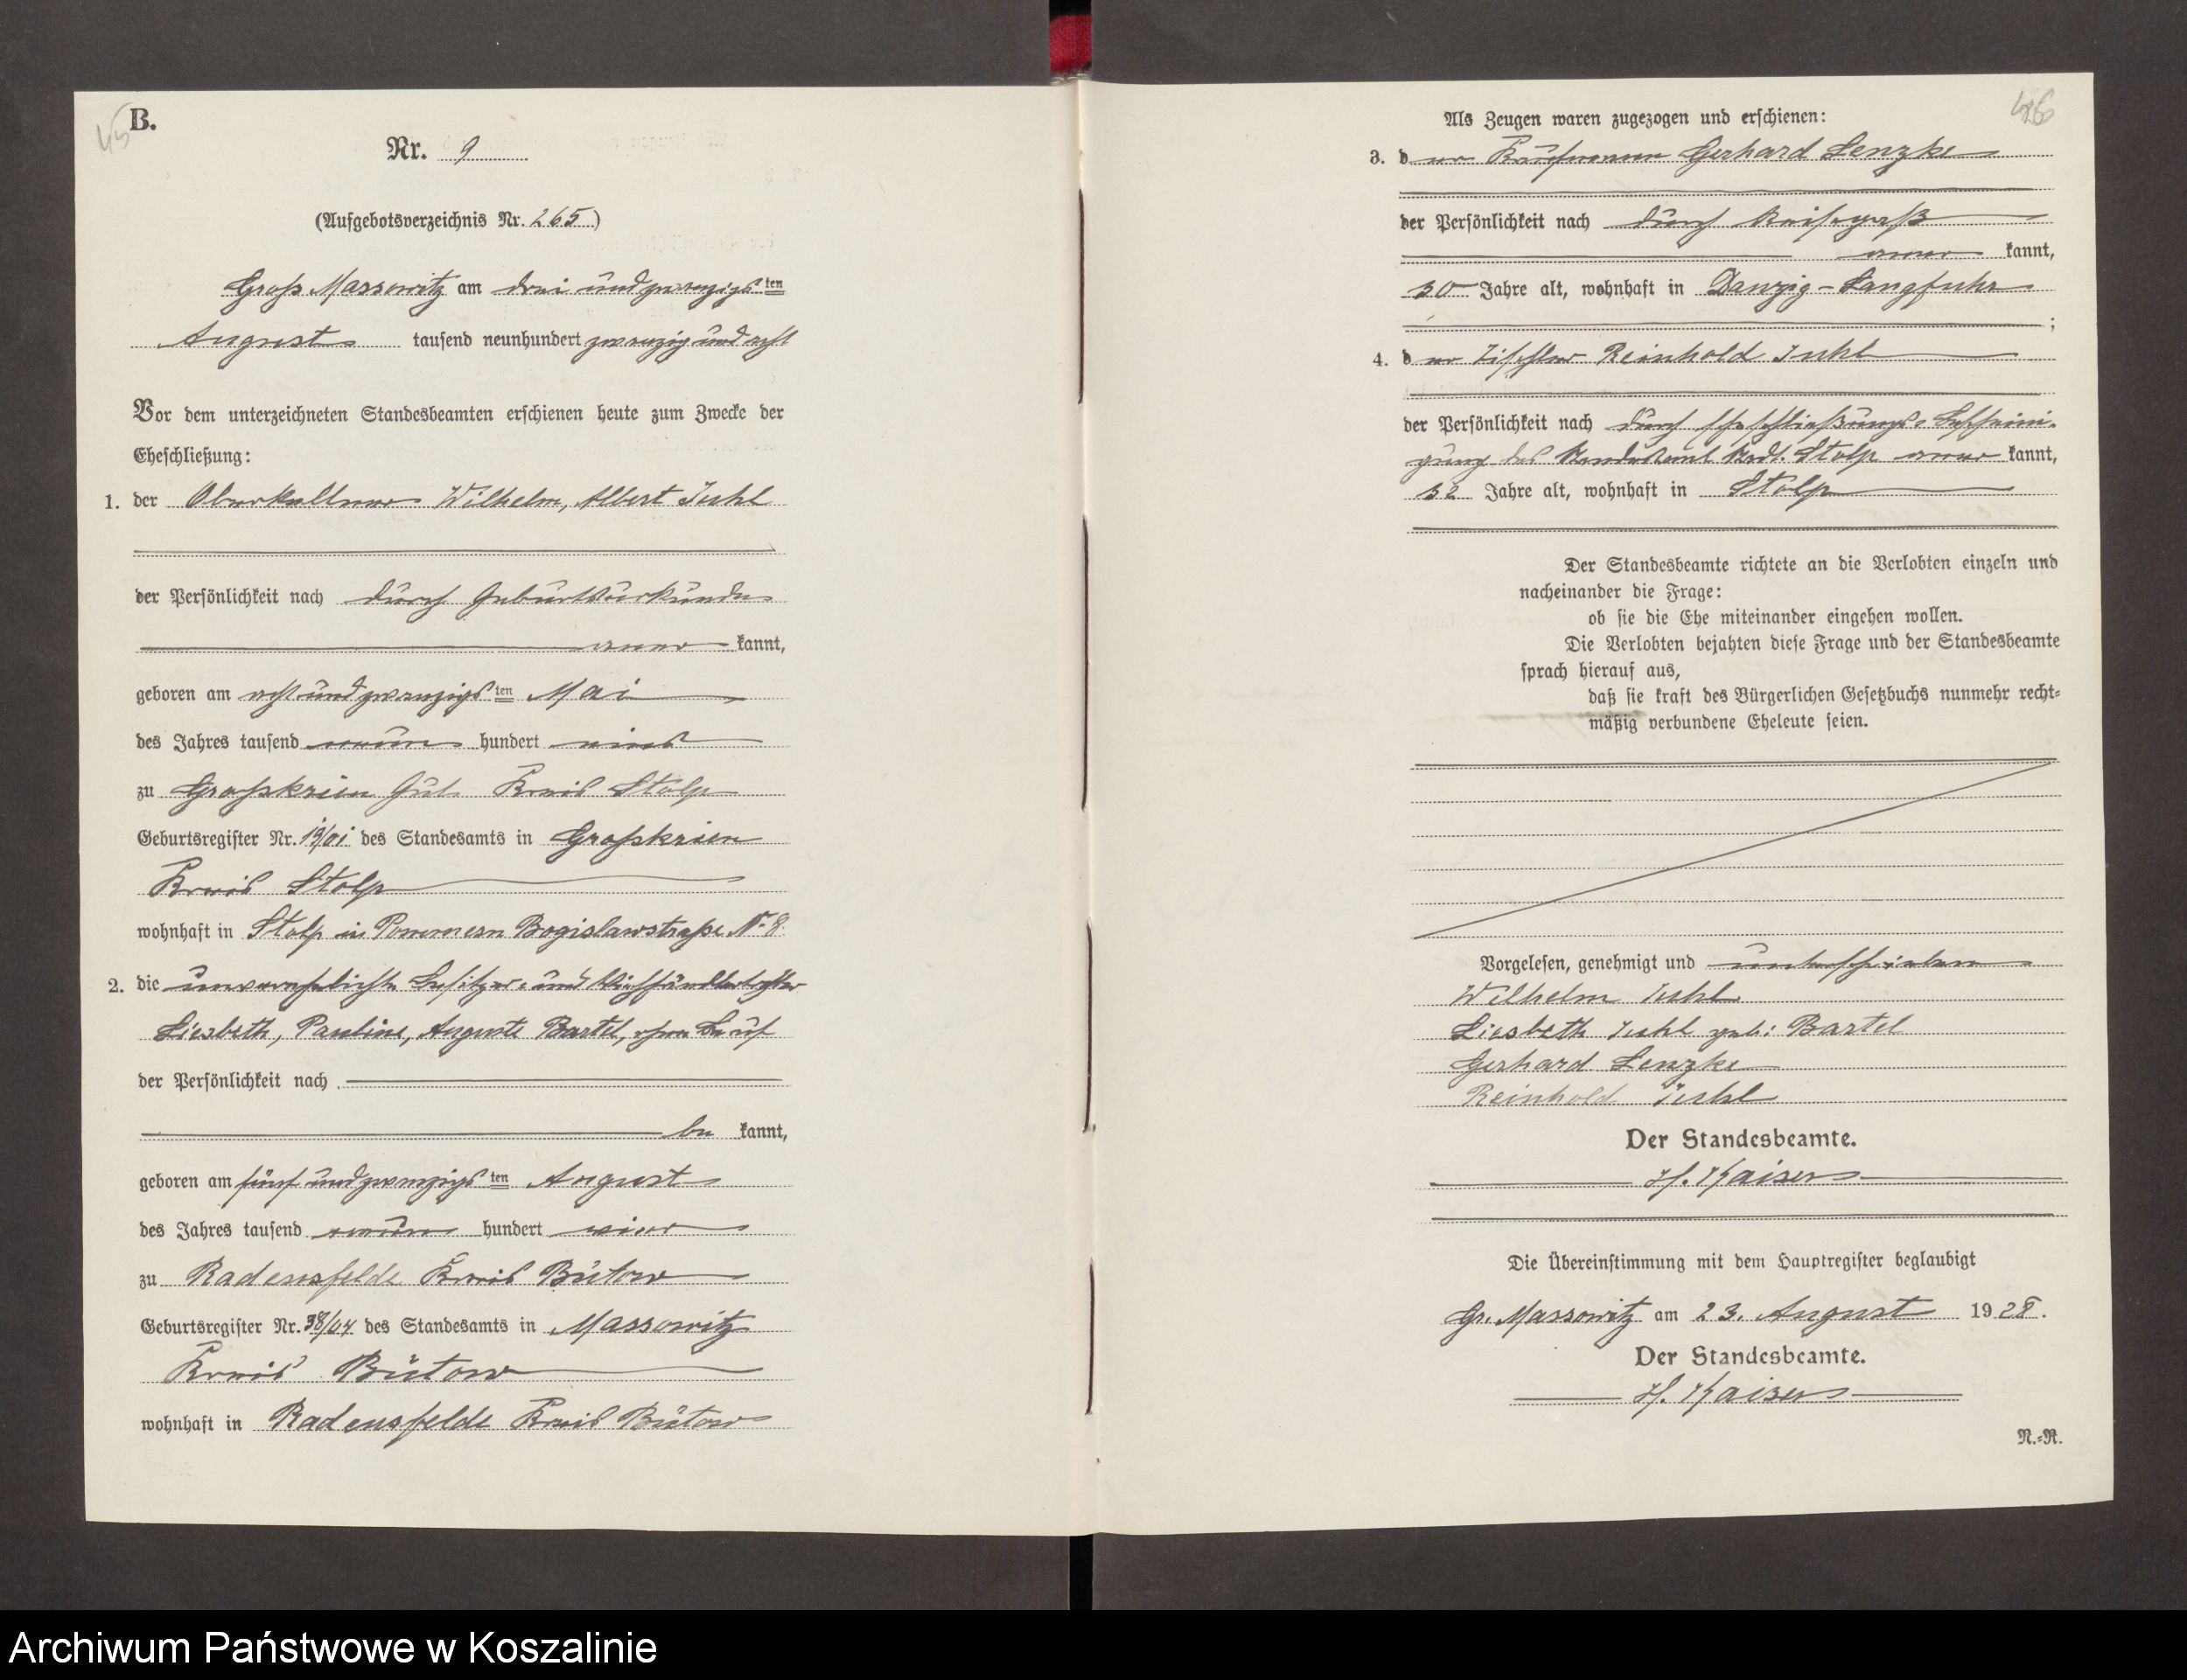 45
B.
Nr. 9
(Aufgebotsverzeichnis Nr. 265.)
Groß Massowitz am drei und zwanzigsten
August tausend neunhundert zwanzig und acht
Vor dem unterzeichneten Standesbeamten erschienen heute zum Zwecke der
Eheschließung:
1. der Oberkellner Wilhelm, Albert Juhl
der Persönlichkeit nach durch Geburtsurkunde
aner kannt,
geboren am acht und zwanzigsten Mai
des Jahres tausend neun hundert eins
zu Großkrien Gut Kreis Stolp
Geburtsregister Nr. 19/01 des Standesamts in Großkrien
Kreis Stolp
wohnhaft in Stolp in Pommern Bogislawstraße Nr 8.
2. die unverehelichte Besitzer- und Viehhändlertochter
Liesbeth, Pauline, Auguste Bartel, ohne Beruf
der Persönlichkeit nach
be kannt,
geboren am fünf und zwanzigsten August
des Jahres tausend neun hundert vier
zu Radensfelde Kreis Bütow
Geburtsregister Nr. 38/04 des Standesamts in Massowitz
Kreis Bütow
wohnhaft in Radensfelde Kreis Bütow
Als Zeugen waren zugezogen und erschienen:
3. der Kaufmann Gerhard Lenzke
der Persönlichkeit nach durch Reisepaß
aner kannt,
30 Jahre alt, wohnhaft in Danzig-Langfuhr
;
4. der Tischler Reinhold Juhl
der Persönlichkeit nach durch Eheschließungs-Bescheini-
gung des Standesamt Stolp aner kannt,
32 Jahre alt, wohnhaft in Stolp
Der Standesbeamte richtete an die Verlobten einzeln und
nacheinander die Frage:
ob sie die Ehe miteinander eingehen wollen.
Die Verlobten bejahten diese Frage und der Standesbeamte
sprach hierauf aus,
daß sie kraft des Bürgerlichen Gesetzbuchs nunmehr recht-
mäßig verbundene Eheleute seien.
Vorgelesen, genehmigt und unterschrieben
Wilhelm Juhl
Liesbeth Juhl geb: Bartel
Gerhard Lenzke
Reinhold Juhl
Der Standesbeamte.
H. Kaiser
Die Übereinstimmung mit dem Hauptregister beglaubigt
Gr. Massowitz am 23. August 1928.
Der Standesbeamte.
H. Kaiser
N.-R.
Archiwum Państwowe w Koszalinie